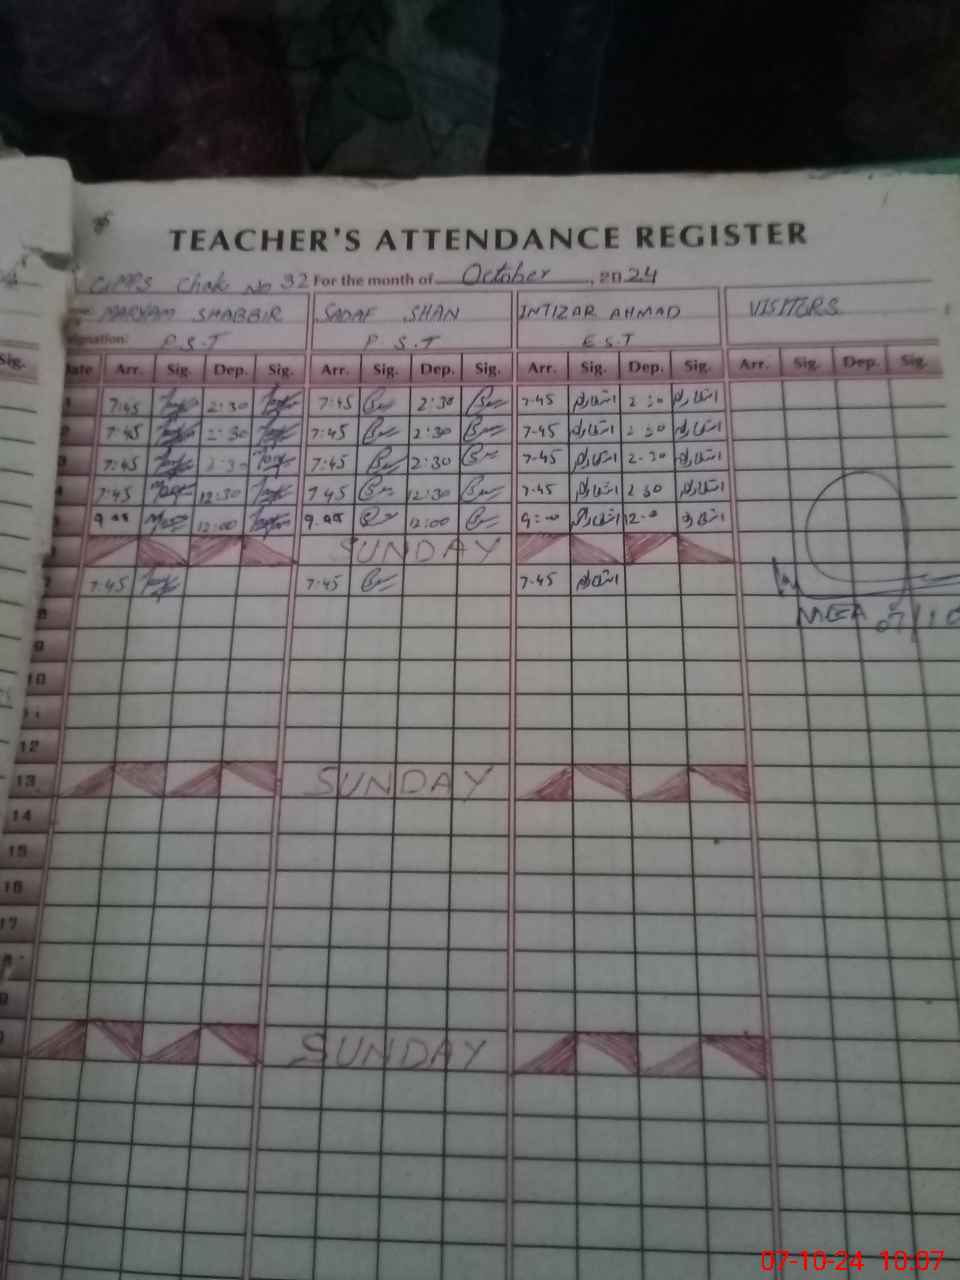 TEACHER'S ATTENDANCE REGISTER
Chak No 32 For the month of October, 2024
MARYAM SHABBIR SADAF SHAN INTIZAR AHMAD VISITORS
P.S.T P.S.T E.S.T
Sig. Arr. Sig. Dep. Sig. Arr. Sig. Dep. Sig. Arr. Sig. Dep. Sig. Arr. Sig. Dep. Sig.
7:45 2:30 7:45 2:30 7-45 انتظار انتظار
7:45 2:30 7:45 2:30 7-45 انتظار 2-30 انتظار
7:45 2:30 7:45 2:30 7-45 انتظار 2-30 انتظار
7:45 12:30 7:45 12:30 7-45 انتظار انتظار
12:00 12:00 9:00 انتظار انتظار
SUNDAY
7:45 7:45 7-45 انتظار
8 MEA 07/10
9
10
11
12
13 SUNDAY
14
15
16
17
SUNDAY
07-10-24 10:07